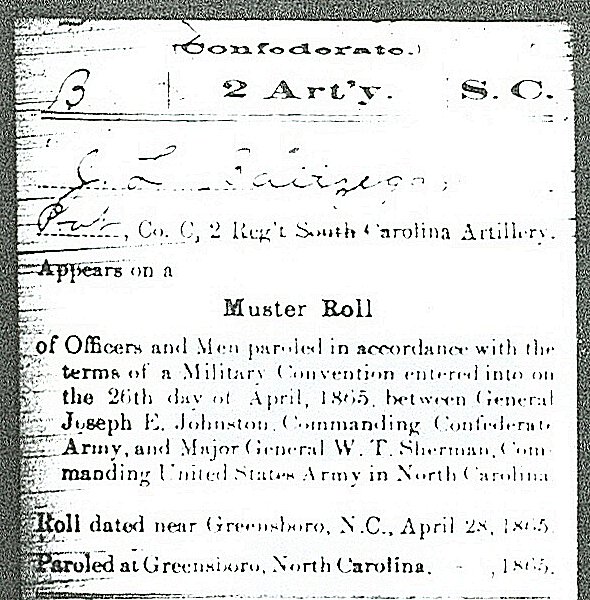 (Confederate.)
B 2 Art'y. S. C.
J L
Pvt, Co. C, 2 Reg't South Carolina Artillery.
Appears on a
Muster Roll
of Officers and Men paroled in accordance with the
terms of a Military Convention entered into on
the 26th day of April, 1865, between General
Joseph E. Johnston, Commanding Confederate
Army, and Major General W. T. Sherman, Com-
manding United States Army in North Carolina
Roll dated near Greensboro, N.C., April 28, 1865.
Paroled at Greensboro, North Carolina, , 1865.